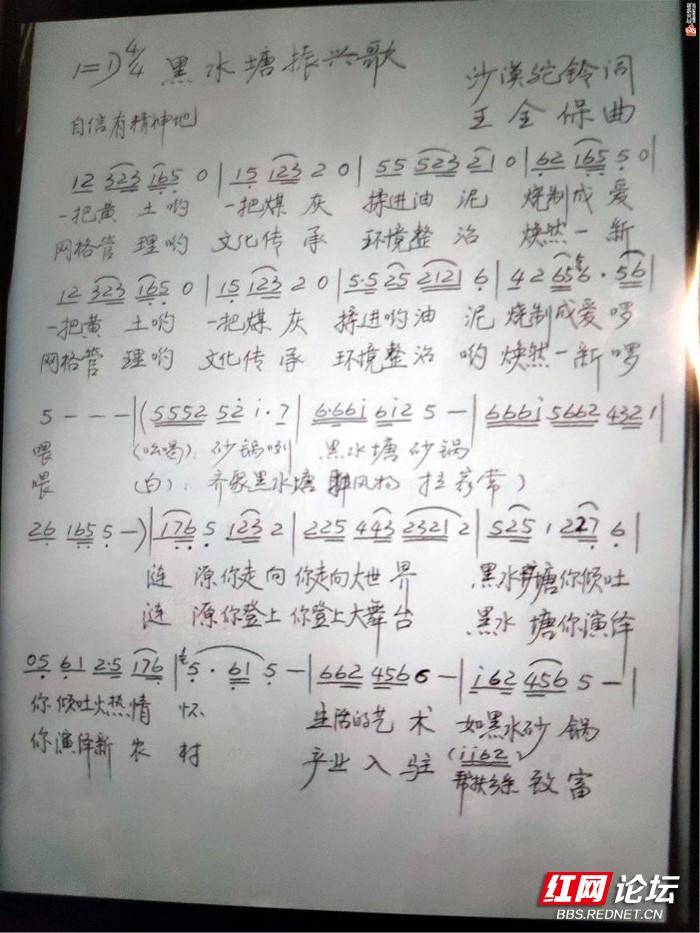 1=D 4/4 黑水塘振兴歌
沙漠驼铃词
王全保曲
自信有精神地
12 323 165 0 | 15 123 2 0 | 55 523 21 0 | 62 165 5 0 |
一把黄 土哟 一把煤 灰 揉进油 泥 烧制成 爱
网格管 理哟 文化传 承 环境整 治 焕然一 新
12 323 165 0 | 15 123 2 0 | 5·5 25 2121 6 | 42 656 · 56 |
一把黄 土哟 一把煤 灰 揉进哟油 泥 烧制成爱啰
网格管 理哟 文化传 承 环境整治 哟 焕然一新啰
5 - - - | (5552 52 i·7 | 6·66i 6i2 5 - | 666i 5662 4321 |
喂 (吆喝): 砂锅咧 黑水塘砂锅
喂 (白): 齐聚黑水塘
26 165 5 -) | 176 5 123 2 | 225 443 2321 2 | 525 1 227 6 |
涟 源你走向 你走向大世界 黑水塘你倾吐
涟 源你登上 你登上大舞台 黑水 塘你演绎
05 61 2·5 176 | 5 · 61 5 - | 662 456 6 - | i62 456 5 - |
你倾吐火热情 怀 生活的艺 术 如黑水砂 锅
你演绎新 农 村 产业入 驻 (ii62)
致富
红网论坛
BBS.REDNET.CN